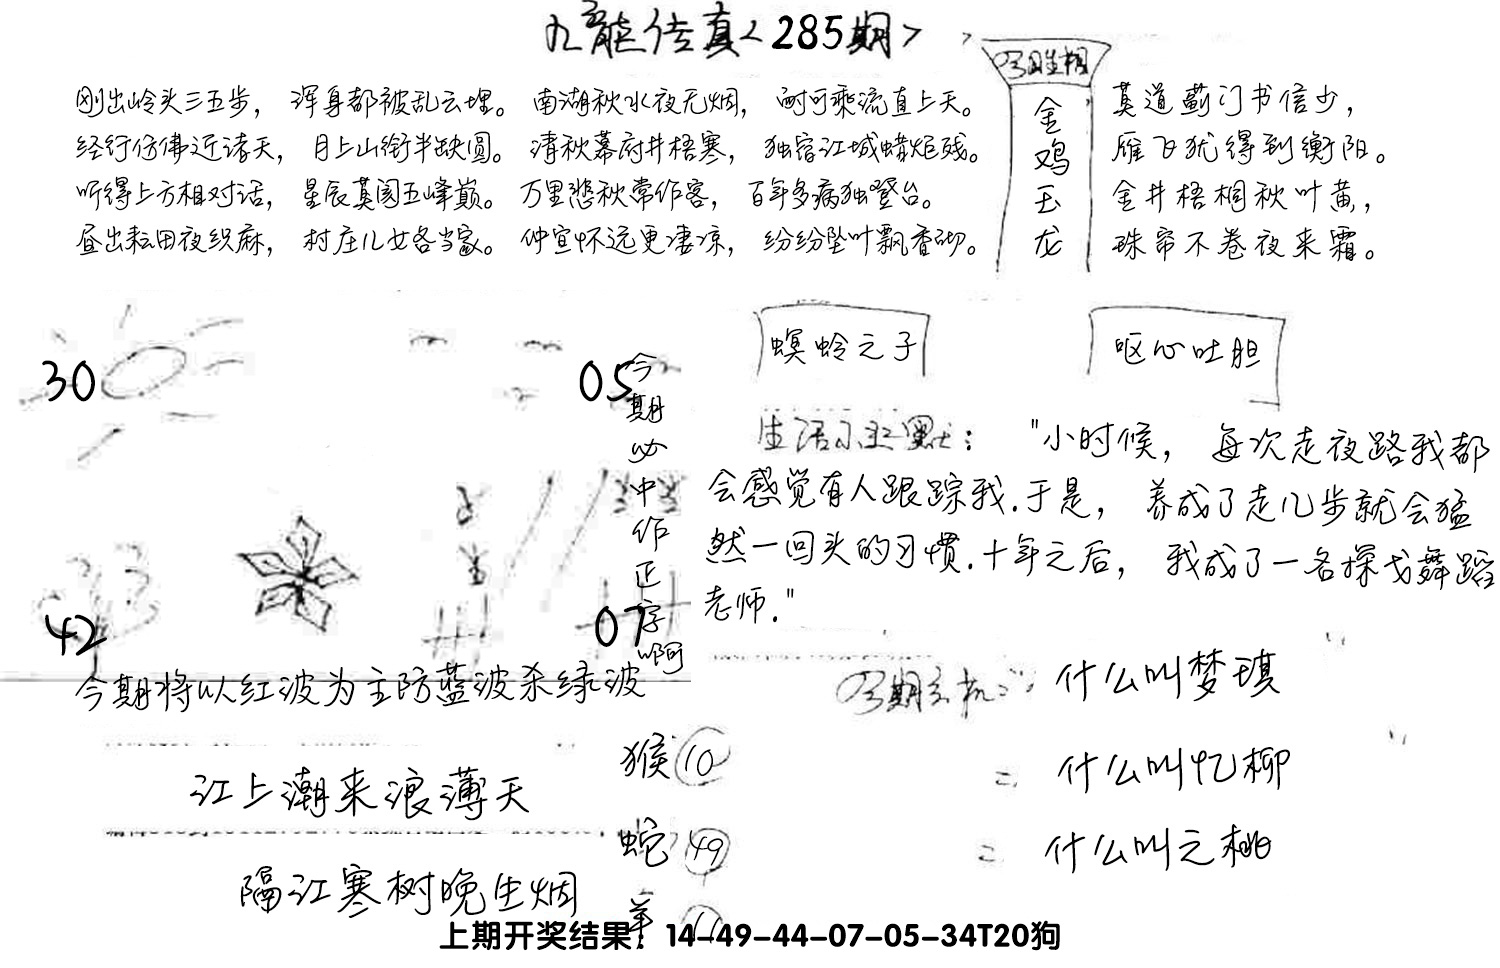 九龙传真<285期>
刚出岭头三五步，浑身都被乱云埋。南湖秋水夜无烟，耐可乘流直上天。
经行仿佛近诸天，月上山衔半缺圆。清秋幕府井梧寒，独宿江城蜡炬残。
听得上方相对话，星辰莫阂五峰巅。万里悲秋常作客，百年多病独登台。
昼出耘田夜织麻，村庄儿女各当家。仲宣怀远更凄凉，纷纷坠叶飘香砌。
金鸡玉龙
莫道蓟门书信少，
雁飞犹得到衡阳。
金井梧桐秋叶黄，
珠帘不卷夜来霜。
螟蛉之子
呕心吐胆
30
05
42
07
今期必中作正字啊
今期将以红波为主防蓝波杀绿波
生活小幽默："小时候，每次走夜路我都
会感觉有人跟踪我.于是，养成了走几步就会猛
然一回头的习惯.十年之后，我成了一名探戈舞蹈
老师."
今期玄机：什么叫梦琪
= 什么叫忆柳
= 什么叫之桃
江上潮来浪薄天
隔江寒树晚生烟
猴 10
蛇 49
羊 11
上期开奖结果：14-49-44-07-05-34T20狗